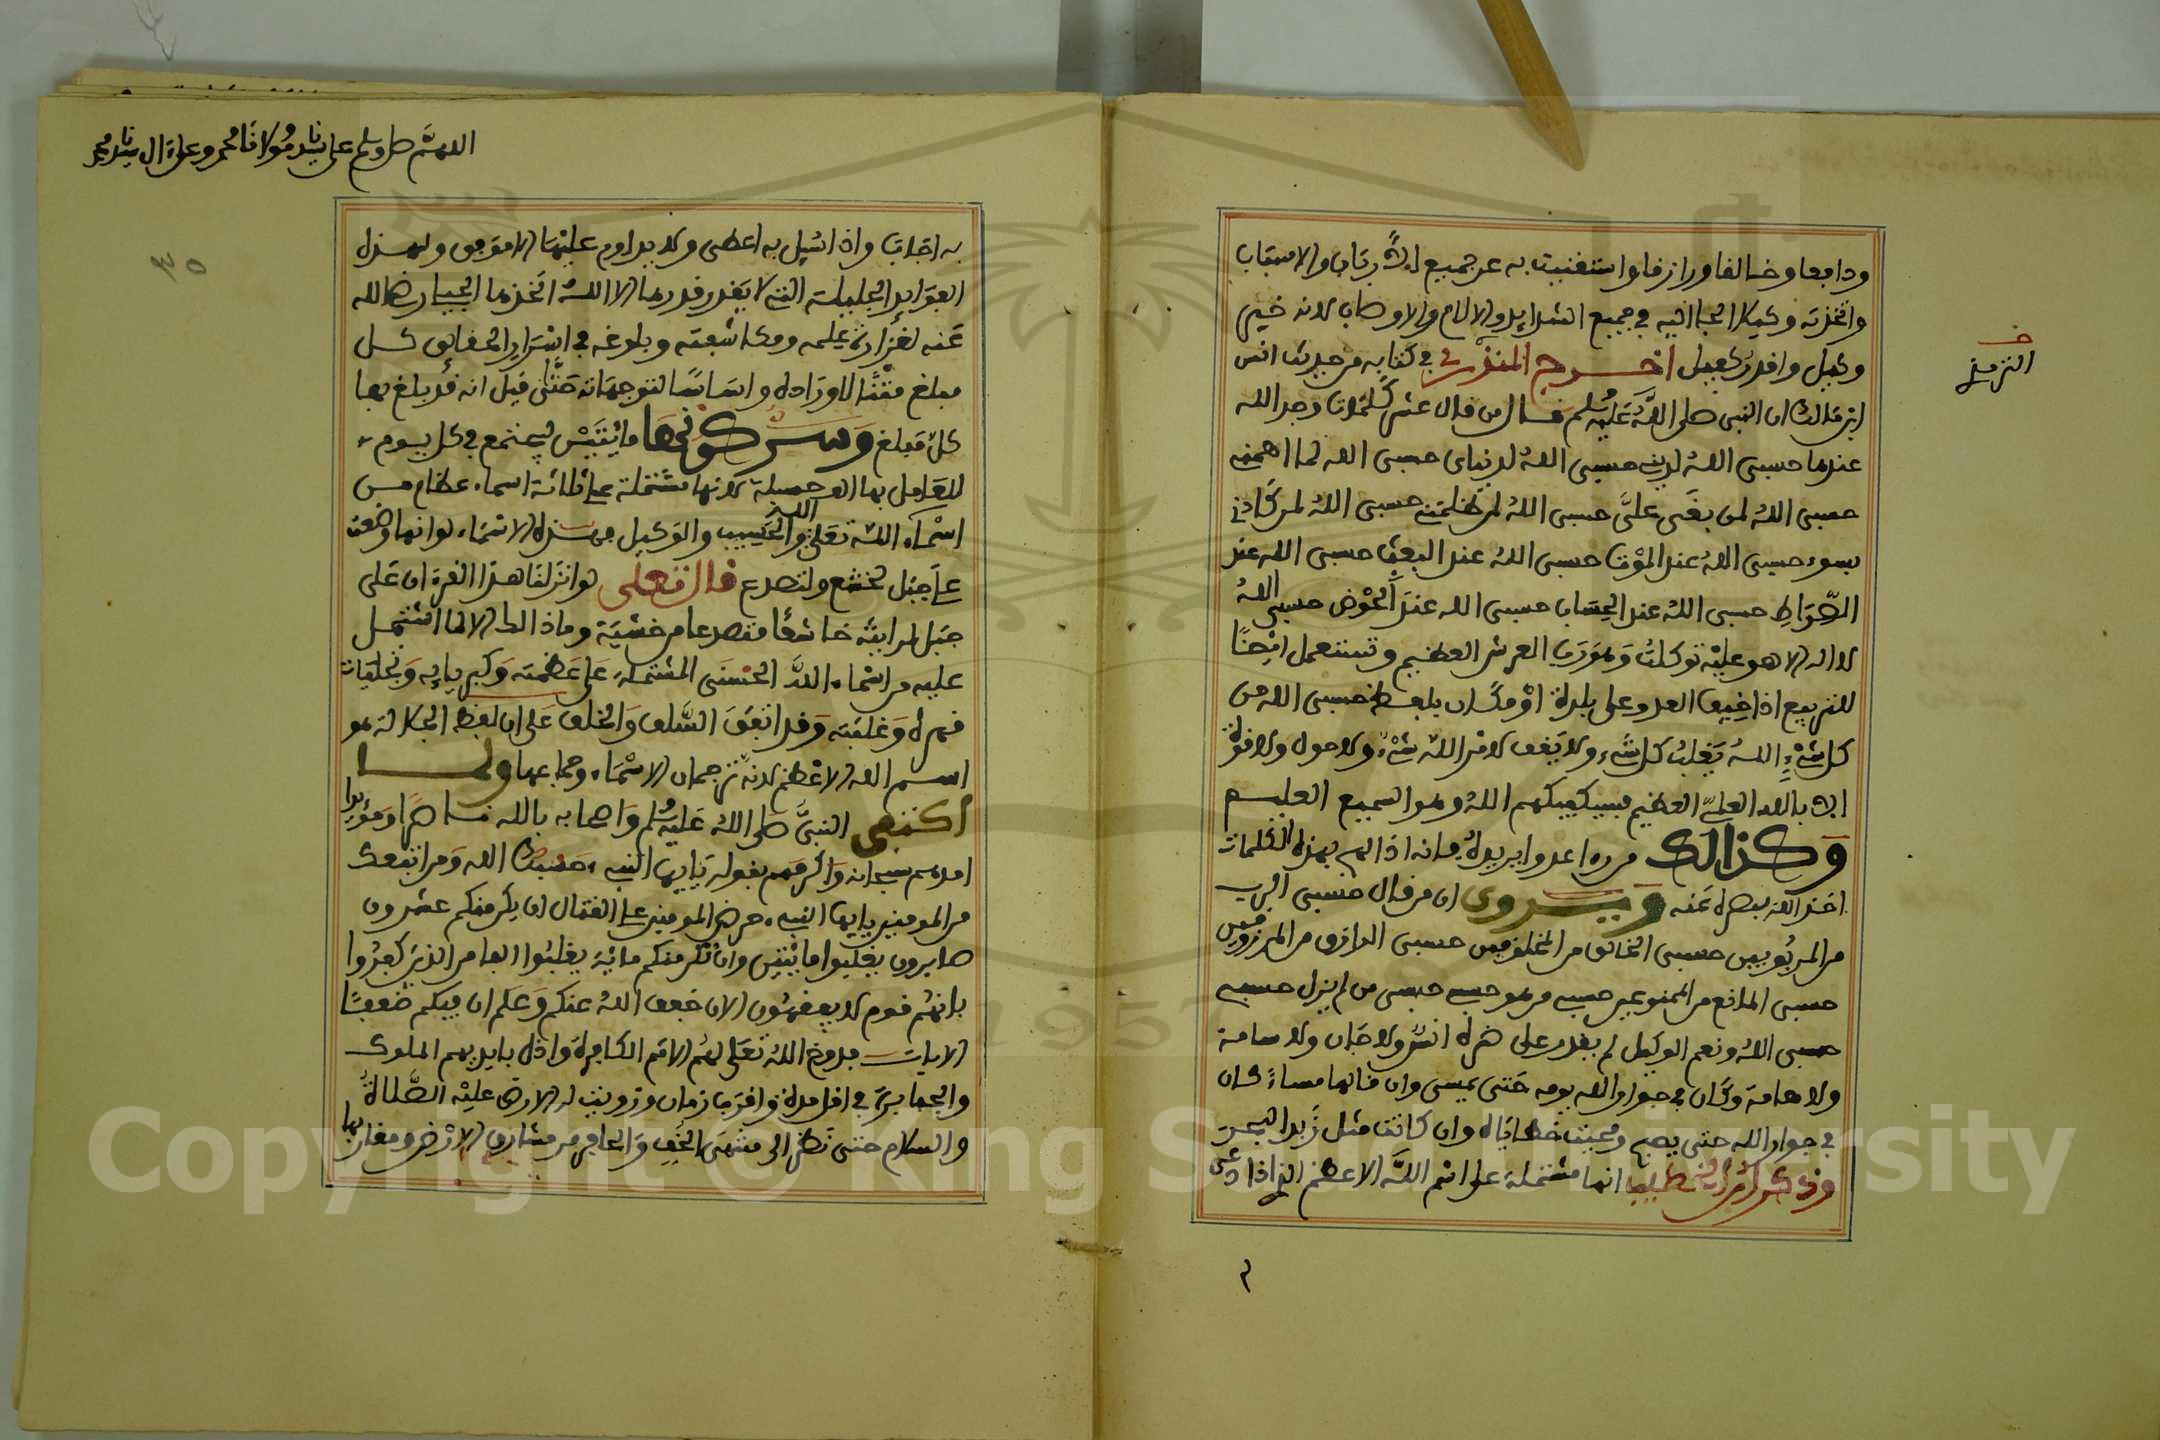 ودافعا وخالفا ورازفا واستغنيت به عن جميع الارباب والاسباب
واتخذته وكيلا لجأ اليه في جميع الشدايد والالام والاوصاب لانه خير
وكيل واقدر كفيل اخرج المنذري في كتابه من حديث انس
الترمذي
ابن مالك ان النبي صلى الله عليه وسلم قال من قال عشر كلمات وجد الله
عندها حسبي الله لديني حسبي الله لدنياي حسبي الله لما اهمني
حسبي الله لمن بغى علي حسبي الله لمن ظلمني حسبي الله لمن كادني
بسوء حسبي الله عند الموت حسبي الله عند البعث حسبي الله عند
الصراط حسبي الله عند الحساب حسبي الله عند الحوض حسبي الله
لا اله الا هو عليه توكلت وهو رب العرش العظيم وتستعمل ايضا
اذا خيف العدو على بلدة او مكان بلفظ حسبي الله من
كل شيء الله يغلب كل شيء ولا يقف لامر الله شيء ولا حول ولا قوة
الا بالله العلي العظيم فسيكفيكهم الله وهو السميع العليم
وكذالك من رءا عدوا يريده فانه اذا بهذه الكلمات
اخذ الله بصره عنه ويروى ان من قال حسبي الرب
من المربوبين حسبي الخالق من المخلوقين حسبي الرازق من المرزوقين
حسبي المانع من الممنوعين حسبي من هو حسبي حسبي من لم يزل حسبي
حسبي الله ونعم الوكيل لم يقدر على ضره انس ولا جان ولا سامة
ولا هامة وكان في جوار الله يومه حتى يمسي وان قالها مساء كان
في جوار الله حتى يصبح ومحيت خطاياه وان كانت مثل زبد البحر
وذكر ابن الخطيب انها مشتملة على اسم الله الاعظم الذي اذا دعي
٢
اللهم صل وسلم على سيدنا ومولانا محمد وعلى ءال سيدنا محمد
٣٥
به اجاب واذا سيل به اعطى ولا يداوم عليها الا موفق ولهذه
الفوايد الجليلة التي لا يقدر قدرها الا الله اتخذها رضي الله
عنه لغزارة علمه ومكاشفته وبلوغه في اسرار الحقائق كل
مبلغ لاوراده واساسا لتوجهاته حتى قيل انه قد بلغ بها
كل مبلغ وسر كونها مايتين يجتمع في كل يوم
للعامل بها الف حسبلة لانها مشتملة على ثلاثة اسماء عظام من
اسماء الله تعلى الله والحسيب والوكيل من هذه الاسماء لو انها وضعت
على جبل لخشع ولتصدع قال تعلى لو انزلنا هذا القرءان على
جبل لرايته خاشعا متصدعا من خشية وما ذالك الا لما اشتمل
عليه من اسماء الله الحسنى المشتملة على عظمته وكبريايه وتجليات
قهره وغلبته وقد اتفق السلف والخلف على ان لفظ الجلالة هو
اسم الله الاعظم لانه ترجمان الاسماء وجماعها ولما
اكتفى النبي صلى الله عليه وسلم واصحابه بالله ناصرا ومؤيدا
امدهم سبحانه واكرمهم بقوله يايها النبي حسبك الله ومن اتبعك
من المومنين يايها النبي حرض المومنين على القتال ان يكن منكم عشرون
صابرون يغلبوا مايتين وان تكن منكم ماية يغلبوا الفا من الذين كفروا
بانهم قوم لا يفقهون الان خفف الله عنكم وعلم ان فيكم ضعفا
الايات فدوخ الله تعلى لهم الامم الكافرة واذل بايديهم الملوك
والجبابرة في اقل مدة واقرب زمان وزويت له الارض عليه الصلاة
والسلام حتى نظر الى منتهى الخف والحافر من مشارق الارض ومغاربها
Copyright © King Saud University
1957